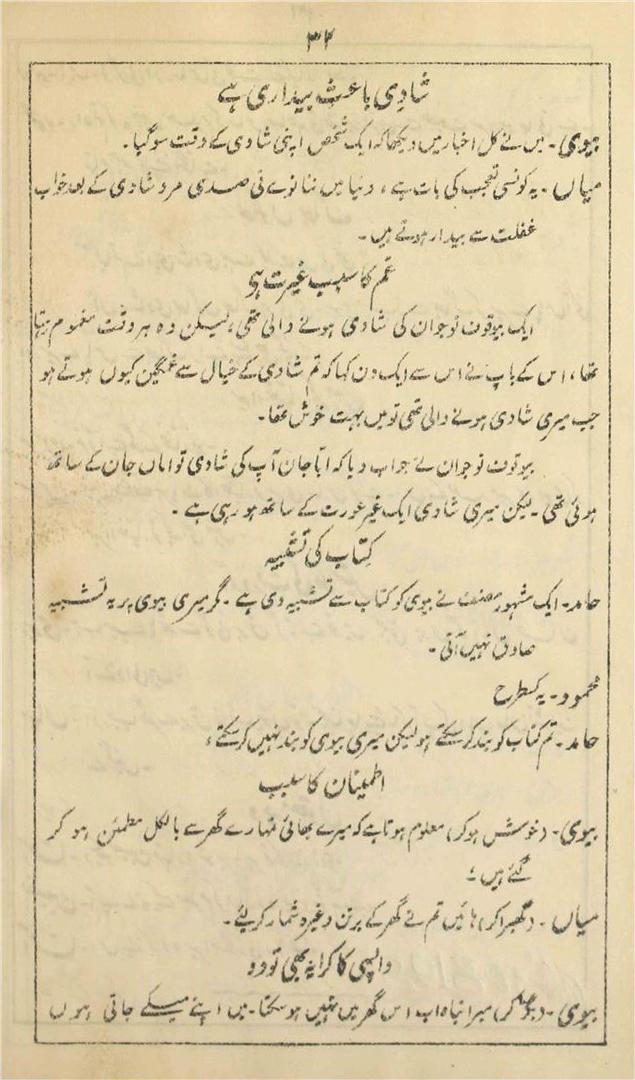 ۳۴
شادی باعث بیداری ہے
بیوی۔ میں نے کل اخبار میں دیکھا کہ ایک شخص اپنی شادی کے وقت سوگیا۔
میاں۔ یہ کونسی تعجب کی بات ہے، دنیا میں ننانوے فی صدی مرد شادی کے بعد خواب
غفلت سے بیدار ہوتے ہیں۔
غم کا سبب غیرت ہی
ایک بیوقوف نوجوان کی شادی ہونے والی تھی، لیکن وہ ہر وقت مغموم رہتا
تھا، اس کے باپ نے اس سے ایک دن کہا کہ تم شادی کے خیال سے غمگین کیوں ہوتے ہو
جب میری شادی ہونے والی تھی تو میں بہت خوش تھا۔
بیوقوف نوجوان نے جواب دیا کہ ابا جان آپ کی شادی تو اماں جان کے ساتھ
ہوئی تھی۔ لیکن میری شادی ایک غیر عورت کے ساتھ ہو رہی ہے۔
کتاب کی تشبیہ
حامد۔ ایک مشہور مصنف نے بیوی کو کتاب سے تشبیہ دی ہے۔ مگر میری بیوی پر یہ تشبیہ
صادق نہیں آتی۔
محمود۔ یہ کسطرح
حامد۔ تم کتاب کو بند کر سکتے ہو لیکن میری بیوی کو بند نہیں کر سکتے،
اطمینان کا سبب
بیوی۔ (خوش ہوکر) معلوم ہوتا ہے کہ میرے بھائی تمہارے گھر سے بالکل مطمئن ہو کر
گئے ہیں؛
میاں۔ (گھبراکر) ہائیں تم نے گھر کے برتن وغیرہ شمار کر لیئے۔
واپسی کا کرایہ بھی تو دو
بیوی۔ (بگڑ کر) میرا نباہ اب اس گھر میں نہیں ہو سکتا۔ میں اپنے میکے جاتی ہوں